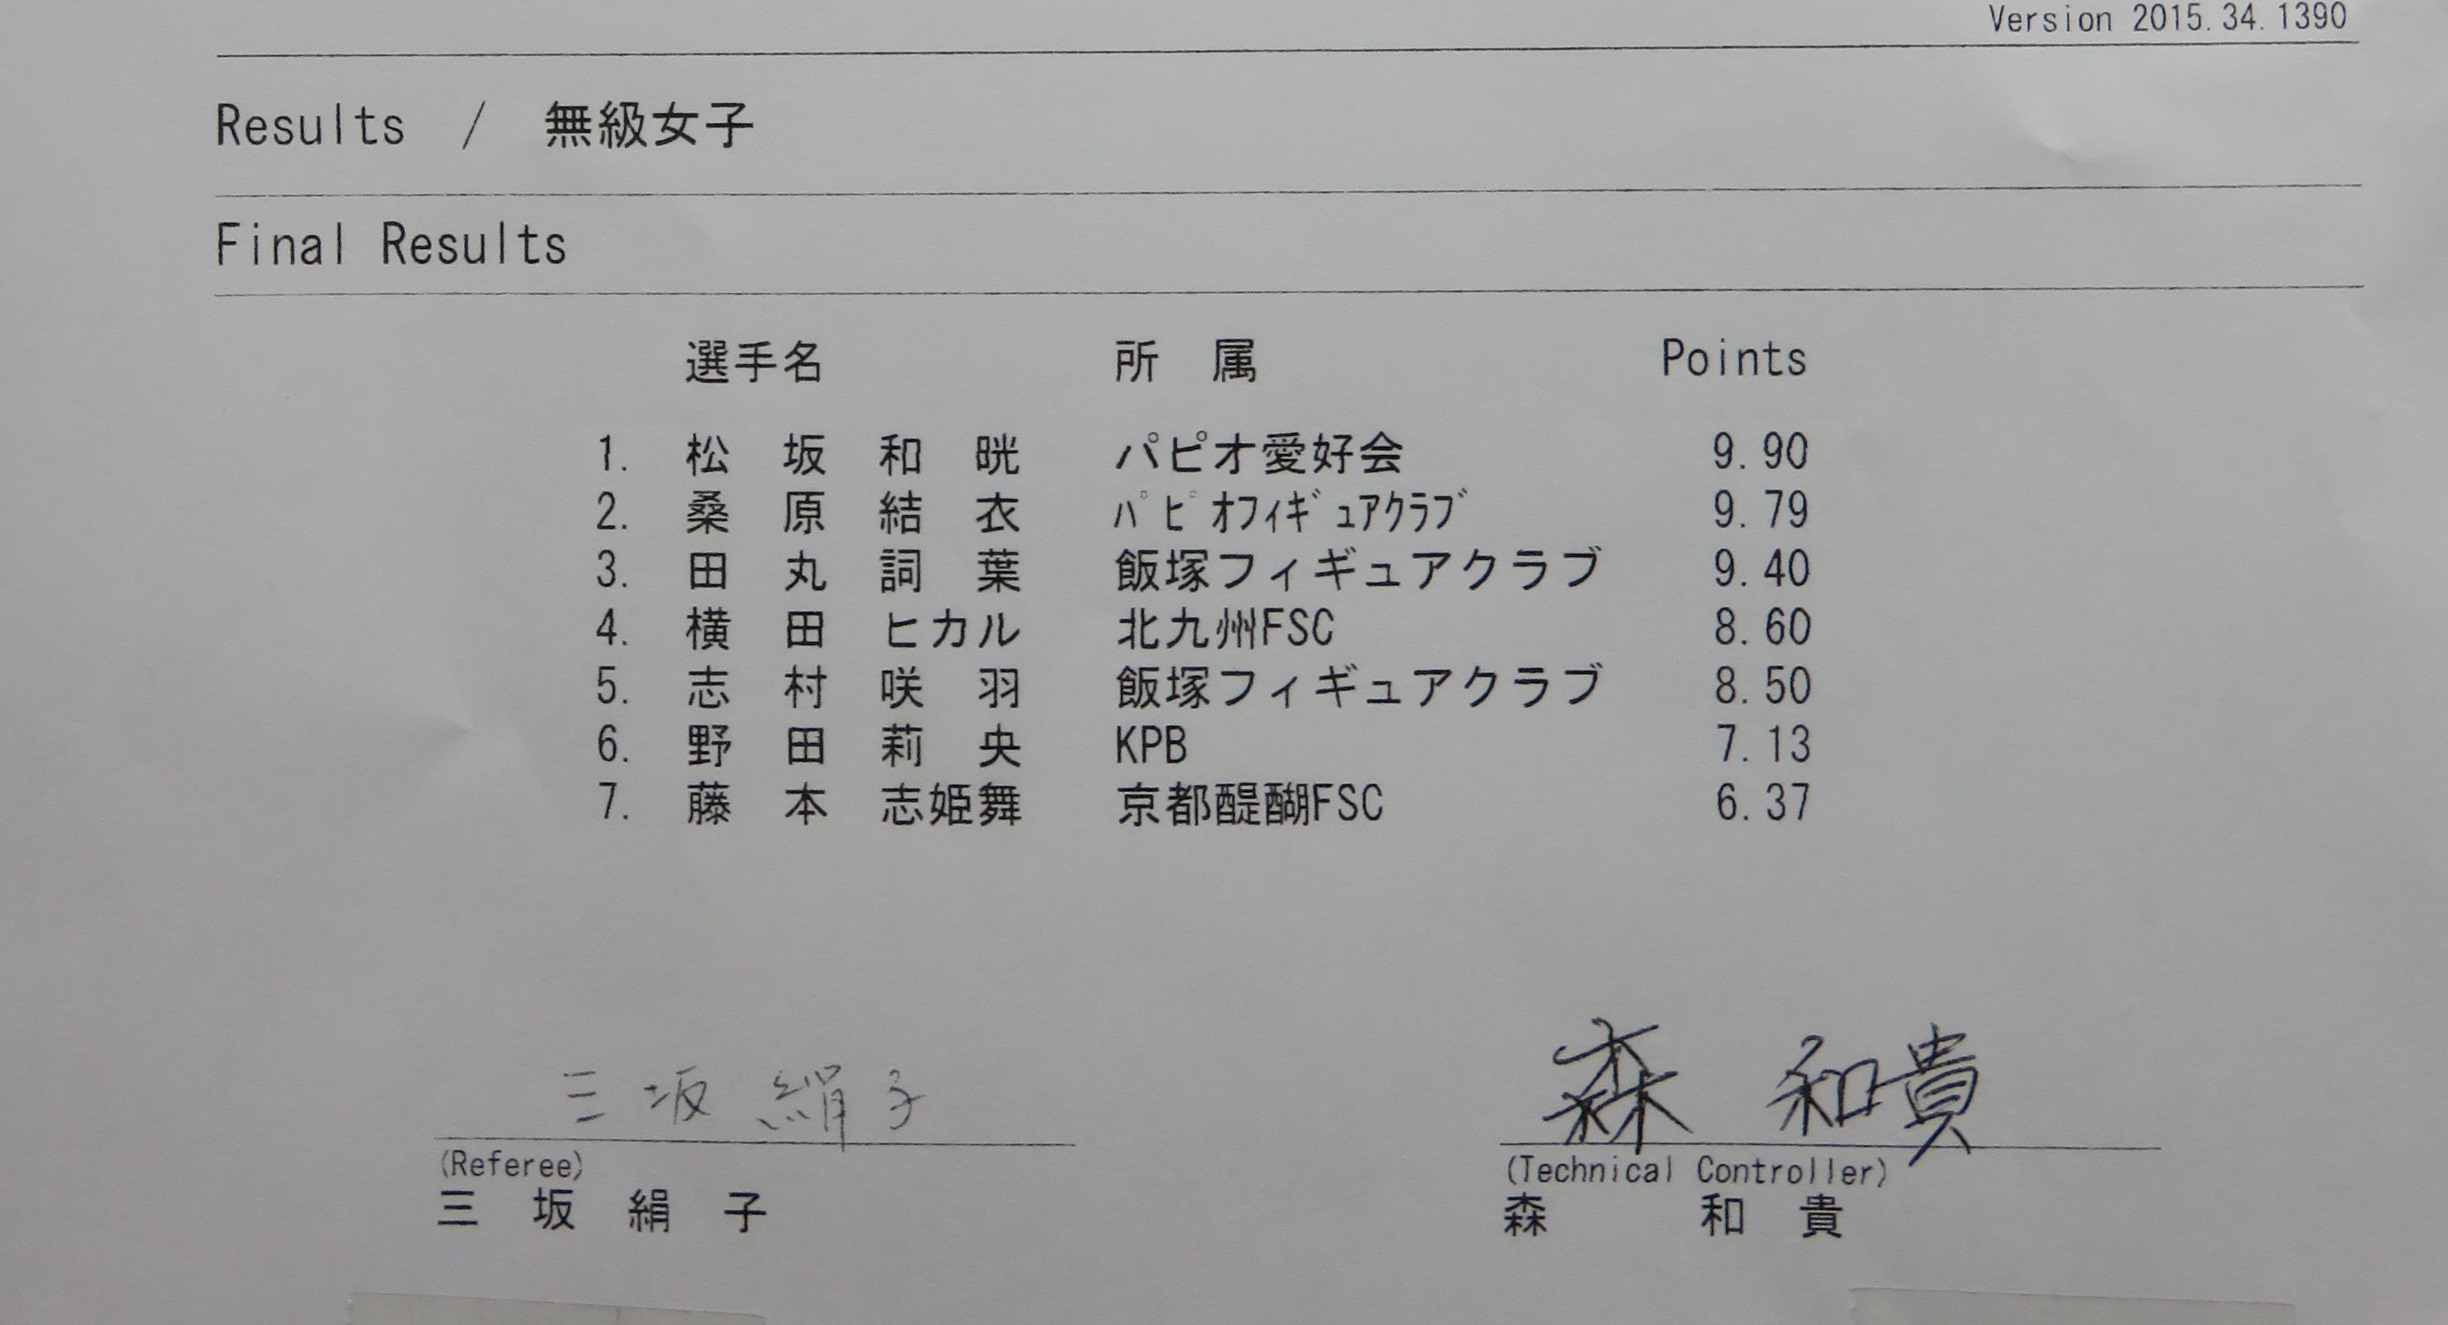 Version 2015.34.1390
Results / 無級女子
Final Results
選手名 所 属 Points
1. 松 坂 和 晄 パピオ愛好会 9.90
2. 桑 原 結 衣 ﾊﾟﾋﾟｵﾌｨｷﾞｭｱｸﾗﾌﾞ 9.79
3. 田 丸 詞 葉 飯塚フィギュアクラブ 9.40
4. 横 田 ヒカル 北九州FSC 8.60
5. 志 村 咲 羽 飯塚フィギュアクラブ 8.50
6. 野 田 莉 央 KPB 7.13
7. 藤 本 志姫舞 京都醍醐FSC 6.37
三坂 絹子 森 和貴
(Referee) (Technical Controller)
三 坂 絹 子 森 和 貴